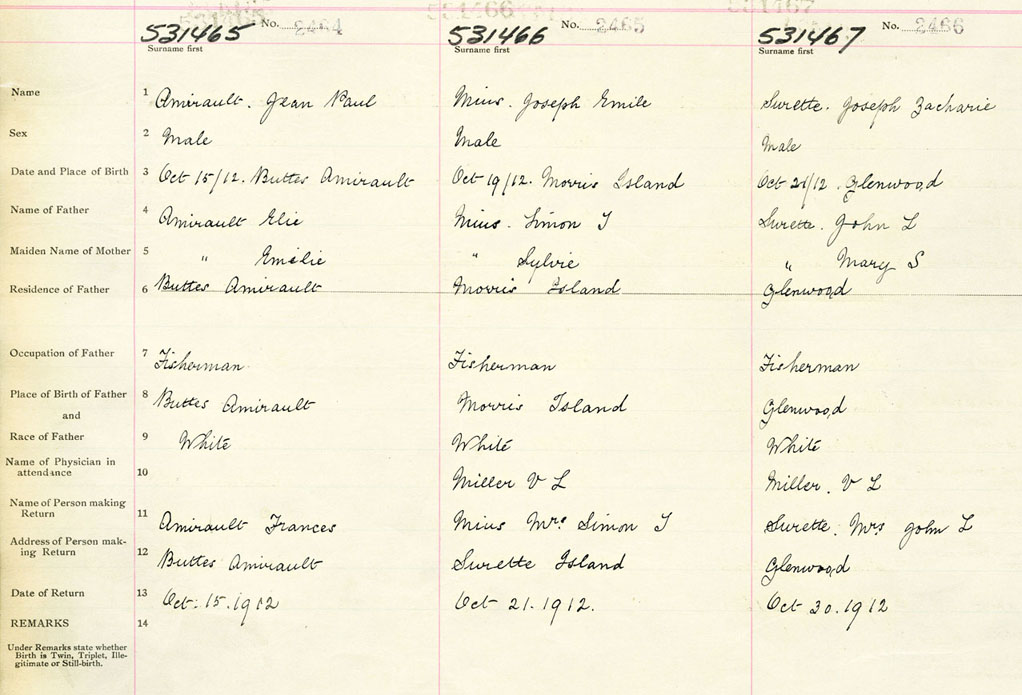 531465 No. 2464 531466 No. 2465 531467 No. 2466
Surname first Surname first Surname first
Name 1 Amirault. Jean Paul Mius. Joseph Emile Surette. Joseph Zacharie
Sex 2 Male Male Male
Date and Place of Birth 3 Oct 15/12. Buttes Amirault Oct 19/12. Morris Island Oct 21/12. Glenwood
Name of Father 4 Amirault Elie Mius. Simon T Surette. John L
Maiden Name of Mother 5 " Emilie " Sylvie " Mary S
Residence of Father 6 Buttes Amirault Morris Island Glenwood
Occupation of Father 7 Fisherman Fisherman Fisherman
Place of Birth of Father 8 Buttes Amirault Morris Island Glenwood
and
Race of Father 9 White White White
Name of Physician in
attendance 10 Miller V L Miller. V L
Name of Person making
Return 11 Amirault Frances Mius Mrs Simon T Surette. Mrs John L
Address of Person mak-
ing Return 12 Buttes Amirault Surette Island Glenwood
Date of Return 13 Oct. 15. 1912 Oct 21. 1912. Oct 30. 1912
REMARKS 14
Under Remarks state whether
Birth is Twin, Triplet, Ille-
gitimate or Still-birth.